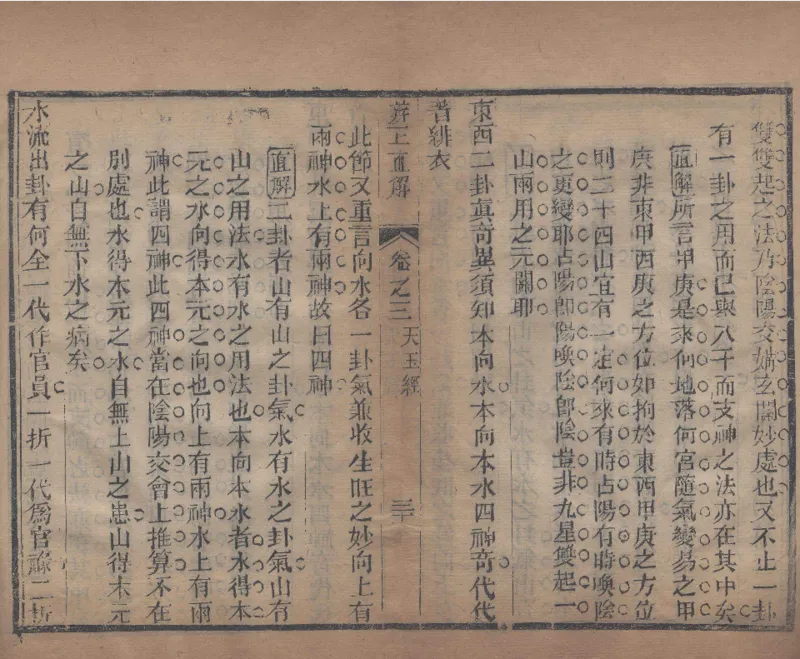 雙雙起之法乃陰陽交媾玄關妙處也又不止一卦
有一卦之用而已與八干而支神之法亦在其中矣
直解所言甲庚是來何地落何宮隨氣變易之甲
庚非東甲西庚之方位如拘於東西甲庚之方位
則二十四山宜有一定何來有時占陽有時喚陰
之更變耶占陽卽陽喚陰卽陰豈非九星雙起一
山兩用之元關耶
東西二卦眞奇異須知本向水本向本水四神奇代代
著緋衣
辨正直解
卷之三
天玉經
三十
此節又重言向水各一卦氣兼收生旺之妙向上有
兩神水上有兩神故曰四神
直解二卦者山有山之卦氣水有水之卦氣山有
山之用法水有水之用法也本向本水者水得本
元之水向得本元之向也向上有兩神水上有兩
神此謂四神此四神當在陰陽交會上推算不在
別處也水得本元之水自無上山之患山得本元
之山自無下水之病矣
水流出卦有何全一代作官員一折一代爲官祿二折